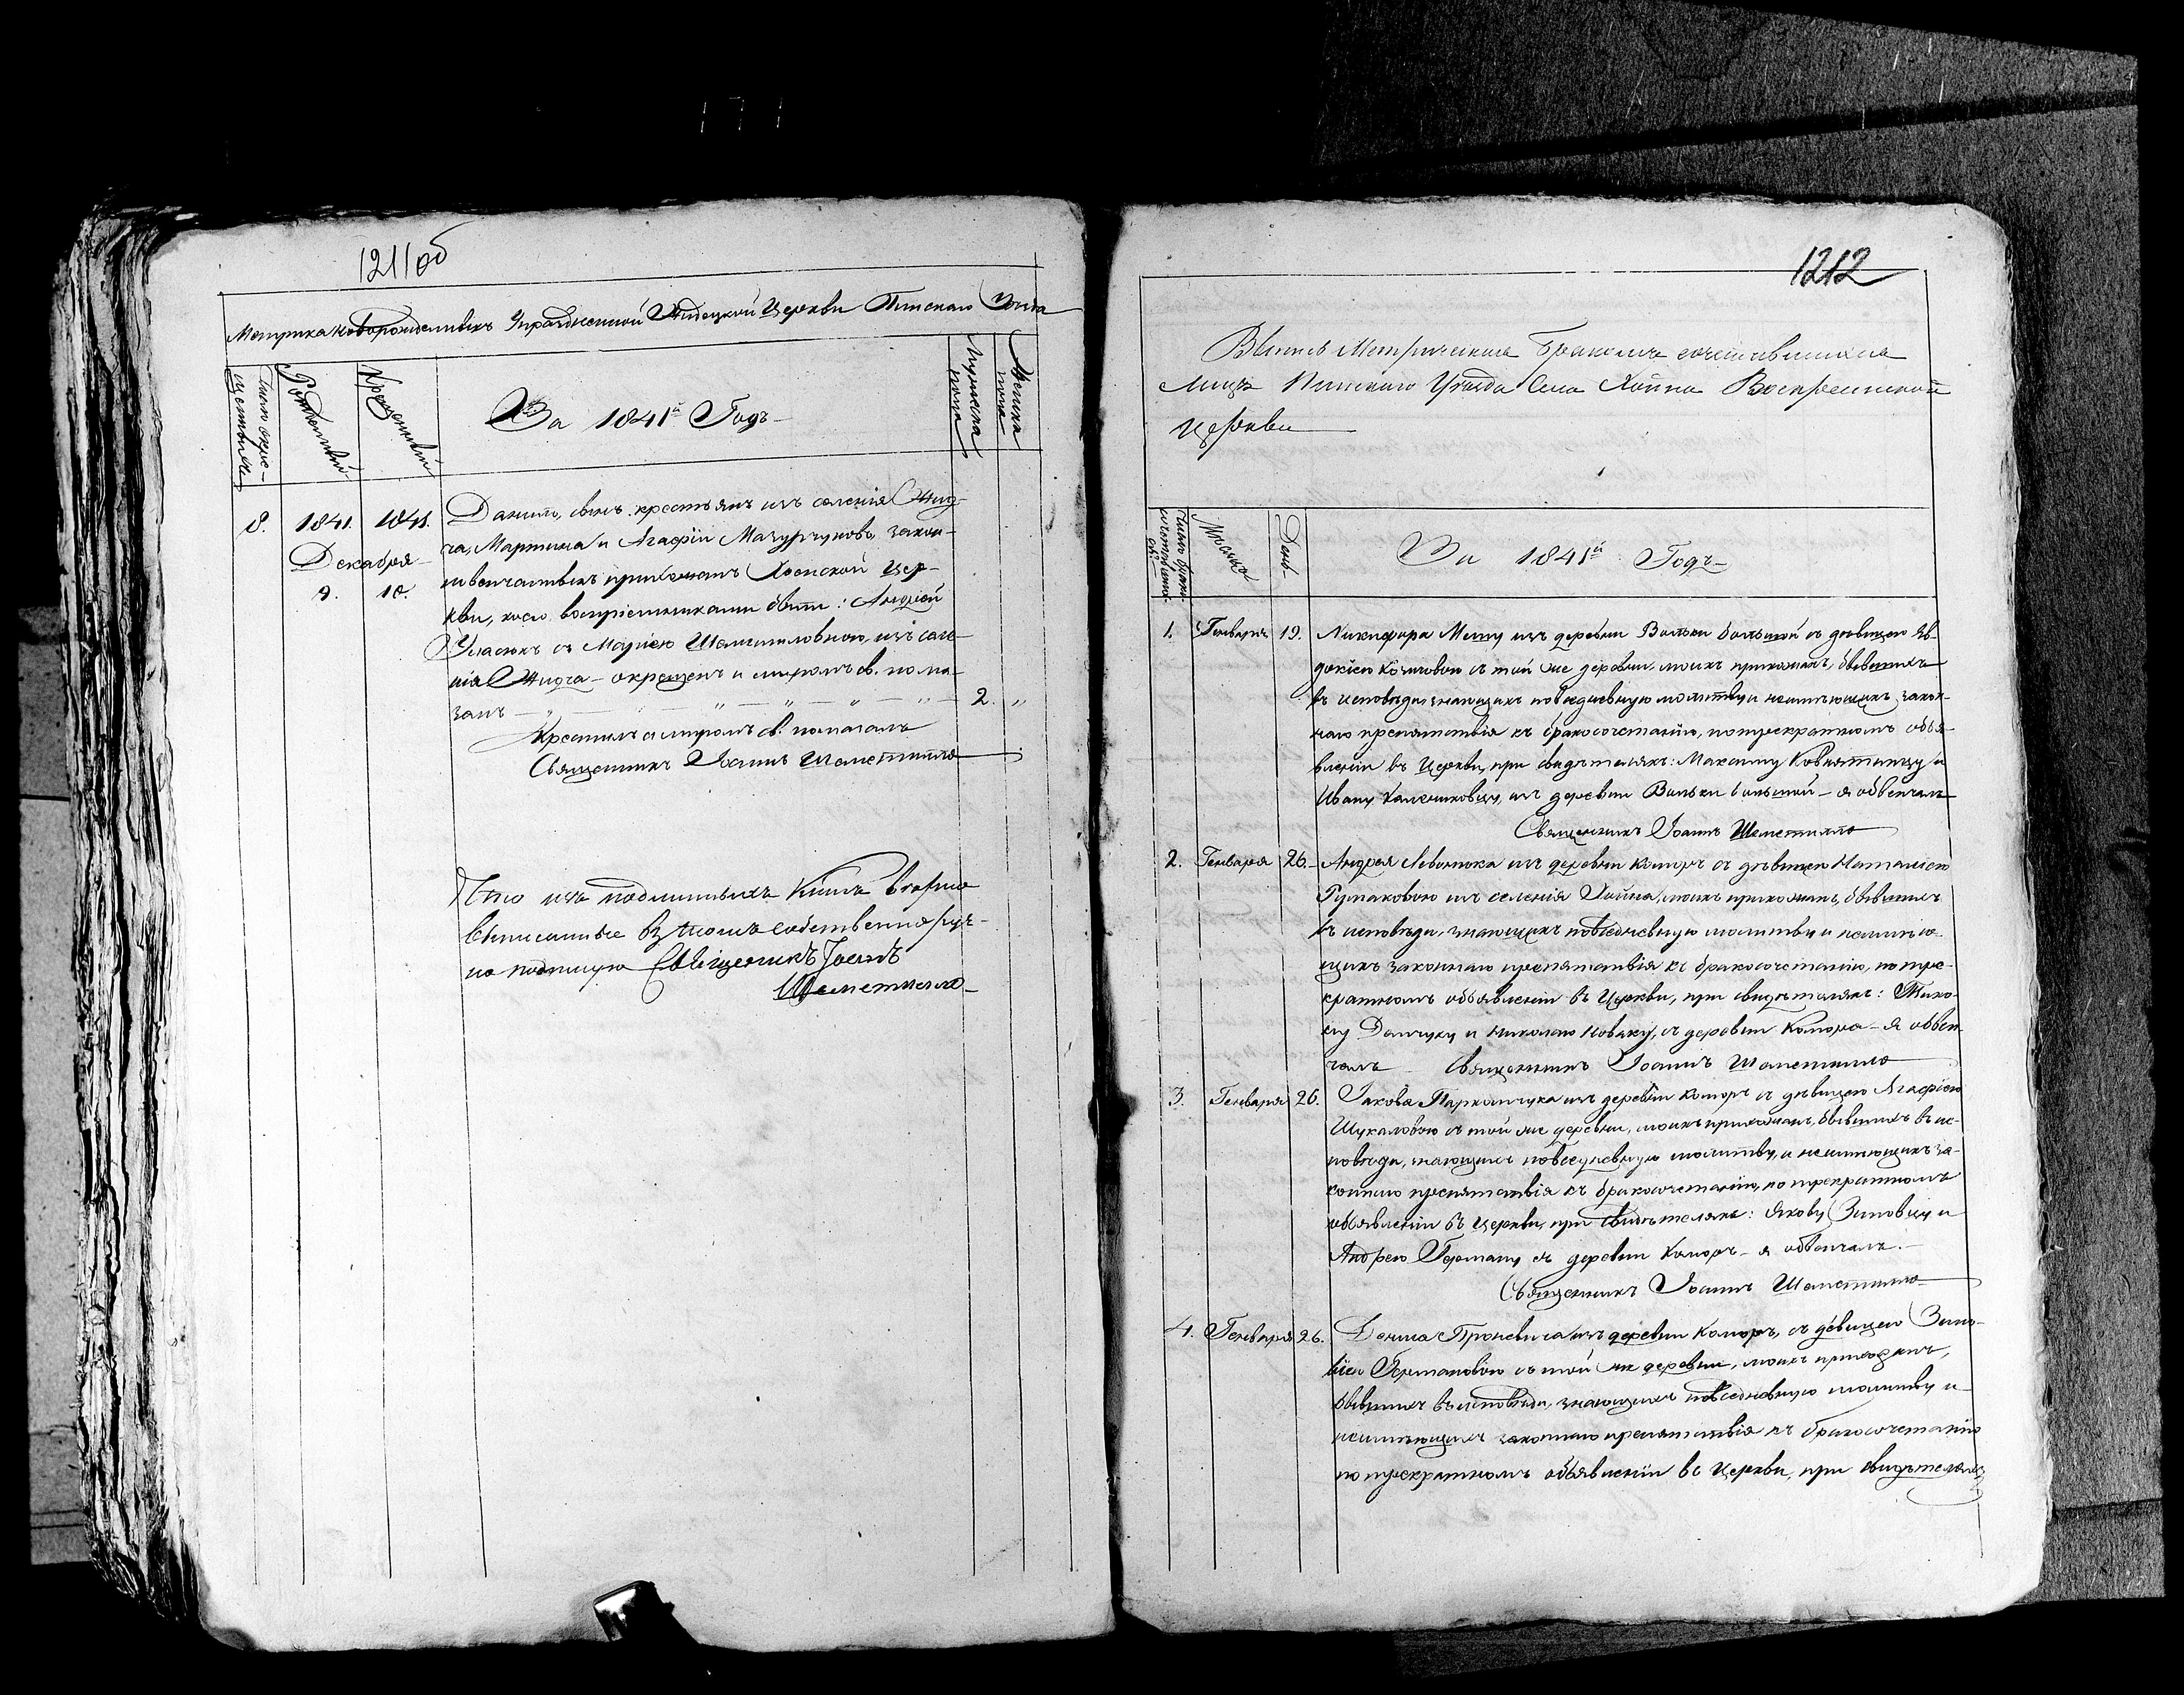 1211об
Метрика новорожденныхъ Упраздненной Жидецкой Церкви Пинскаго Уезда
Число окре-
щенныхъ
Рожденный
Крещенный
За 1841й Годъ
Мужеска
пола
Женска
пола
8. 1841. 1841. Данило, сынъ крестьянъ изъ селенія Жид-
ча, Мартина и Агафіи Мазурчуковъ, закон-
Декабря
новенчанныхъ прихожанъ Хоенской Цер-
9. 10.
кви, коего воспріемниками были: Андрей
Уласюкъ съ Маріею Шеметилловною, изъ селе-
нія Жидча - окрещенъ и миромъ св. пома-
занъ 2. "
Крестилъ и миромъ св. помазалъ
Священникъ Іоаннъ Шеметилло
Что изъ подлинныхъ Книгъ верно
выписанные въ томъ собственноруч-
но подпишуюсь Священникъ Іоаннъ
Шеметилло
1212
Выпись Метрическая Бракомъ сочетавшихся
лицъ Пинскаго Уезда Села Хойна Воскресенской
Церкви
Число брако-
Месяцъ
День
За 1841й Годъ
1. Генваря 19. Никифора Мешу изъ деревни Вольки большой съ девицею Ев-
докіею съ той же деревни, моихъ прихожанъ, бывшихъ
въ исповеди, знающихъ повседневную молитву и неимеющихъ закон-
наго препятствія къ бракосочетанію, по трекратномъ объя-
вленіи въ Церкви, при свидетеляхъ: Максиму и
Ивану изъ деревни Вольки большой - я обвенчалъ
Священникъ Іоаннъ Шеметилло
2. Генваря 26. Андрея Левонюка изъ деревни Коморъ съ девицею Наталіею
изъ селенія Хойна, моихъ прихожанъ, бывшихъ
въ исповеди, знающихъ повседневную молитву и неимею-
щихъ законнаго препятствія къ бракосочетанію, по тре-
кратномъ объявленіи въ Церкви, при свидетеляхъ:
Данчуку и Николаю Новаку, съ деревни Комора - я обвен-
чалъ Священникъ Іоаннъ Шеметилло
3. Генваря 26. Іакова Пархомчука изъ деревни Коморъ съ девицею Агафіею
Шукаловою съ той же деревни, моихъ прихожанъ, бывшихъ въ ис-
поведи, знающихъ повседневную молитву, и неимеющихъ за-
коннаго препятствія къ бракосочетанію, по трекратномъ
объявленіи въ Церкви, при свидетеляхъ: Якову Зиновцу и
Андрею Герману съ деревни Коморъ - я обвенчалъ.
Священникъ Іоаннъ Шеметилло
4. Генваря 26. Дениса Проневича изъ деревни Коморъ, съ девицею Зино-
віею Германовою съ той же деревни, моихъ прихожанъ,
бывшихъ въ исповеди, знающихъ повседневную молитву и
неимеющихъ законнаго препятствія къ бракосочетанію
по трекратномъ объявленіи въ Церкви, при свидетеляхъ